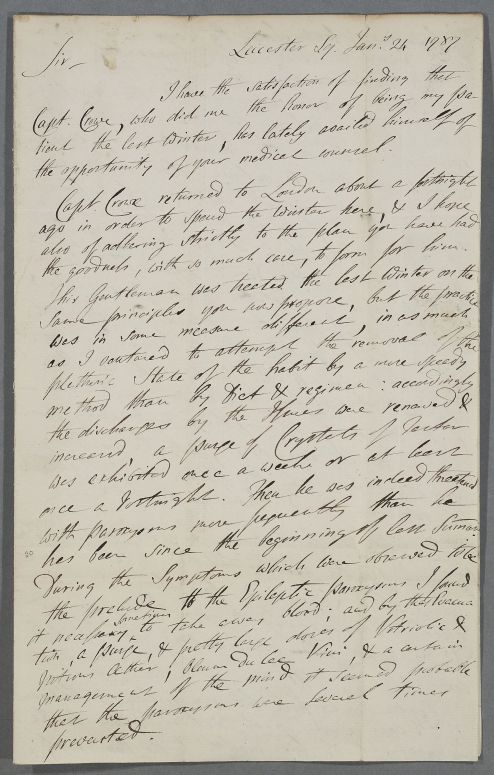 Leicester Sq. Jan.y 24 1787
Sir –
I have the satisfaction of finding that
Capt. Crowe, who did me the honor of being my pa-
tient the last Winter, has lately availed himself of
the opportunity of your medical counsel.
Capt Crowe returned to London about a fortnight
ago in order to spend the Winter here, & I hope
also of adhering strictly to the plan you have had
the goodness, with so much care, to form for him.
This Gentleman was treated the last Winter on the
same principles you now propose, but the practice
was in some measure different, in as much
as I ventured to attempt the removal of the
plethoric State of the habit by a more speedy
method than by Diet & regimen: accordingly
the discharges by the Issues were renewed &
increased, a purge of Crystals of Tartar
was exhibited once a week or at least
once a Fortnight. Then he was indeed threatened
with paroxysms more frequently than he
has been since the beginning of last Summer
During the Symptoms which were observed to be
the prelude to the Epileptic paroxysms I found
it necessary sometimes to take away blood; and by this Evacua-
tion, a purge, & pretty large doses of Vitriolic &
Nitrous Æther, Oleum dulce Vini, & a certain
management of the mind it seemed probable
that the paroxysms were several times
prevented.